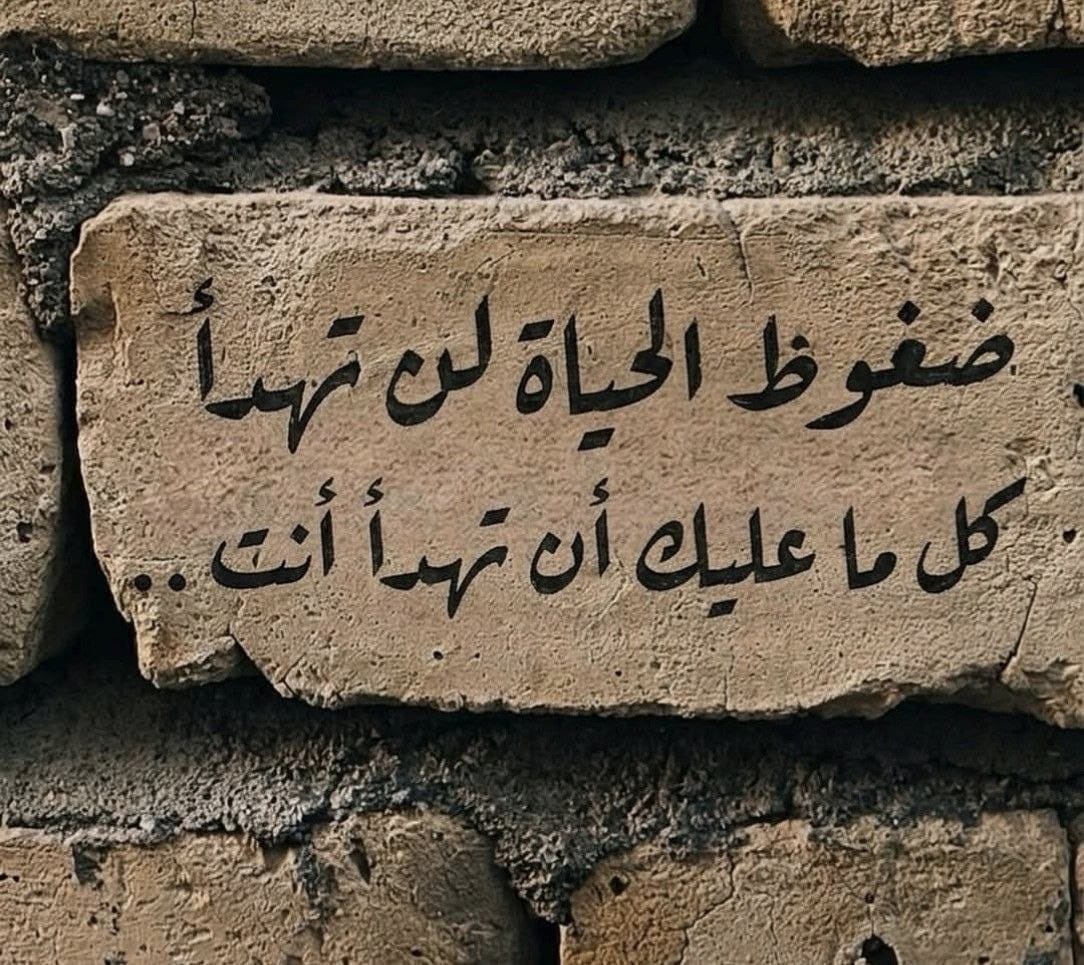 ضغوظ الحياة لن تهدأ
كل ما عليك أن تهدأ أنت ..